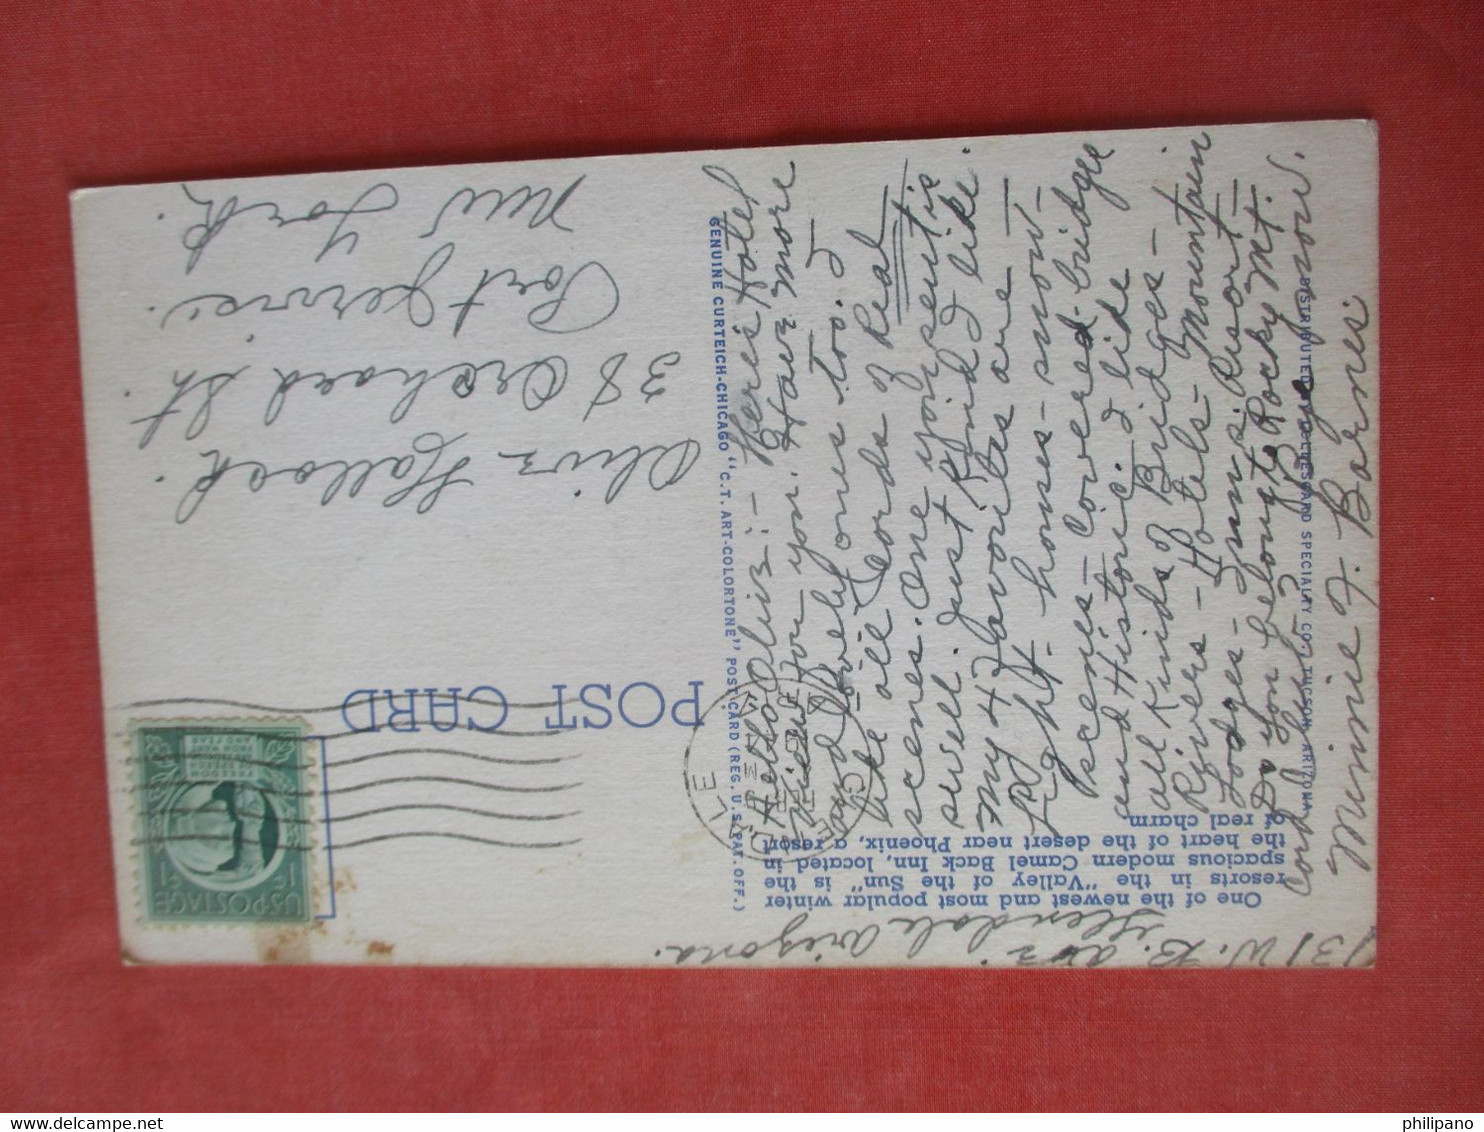 One of the newest and most popular winter
resorts in the "Valley of the Sun" is the
spacious modern Camel Back Inn, located in
the heart of the desert near Phoenix, a resort
of real charm.
POST CARD
U.S. POSTAGE
1¢ 1¢
FREEDOM
FROM WANT
AND FEAR
GENUINE CURTEICH-CHICAGO "C.T. ART-COLORTONE" POST CARD (REG. U.S. PAT. OFF.)
DISTRIBUTED SPECIALTY CO., TUCSON, ARIZONA
Hello Olive:- Here's Hotel
View for you. Have more
and lovely ones too. I
like all Cards of Real
scenes. One you sent is
swell. Just kind I like.
My 4 favorites are
Light-houses - snow-
scenes - Covered-bridge
and Historic. I like
all Kinds of Bridges -
Rivers - Hotels - Mountain
Lodges - Inns. Resort -
Do you belong to Rocky Mt.
Card Club?
Minnie F. Barnes.
131 W. B. ave
Glendale Arizona.
Olive Hallock.
38 Orchard St.
Port Jervis.
New York.
philipano